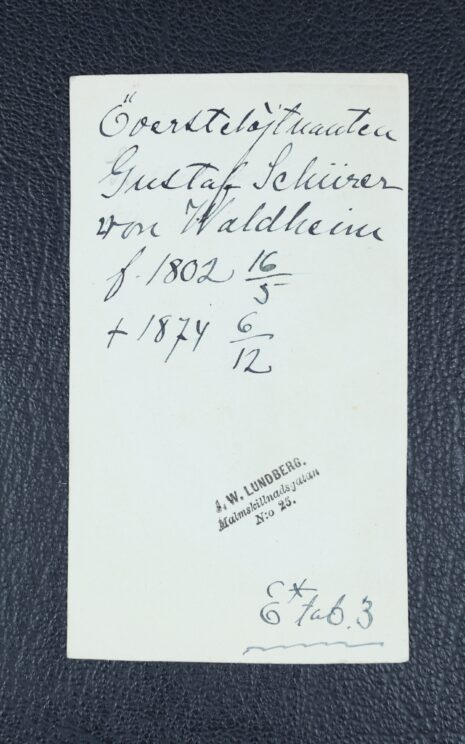 Öoerstelöjtnanten
Gustaf Schürer
von Waldheim
f. 1802 16/5
+ 1874 6/12
A. W. LUNDBERG.
Malmskillnadsgatan
N:o 25.
E* tab. 3